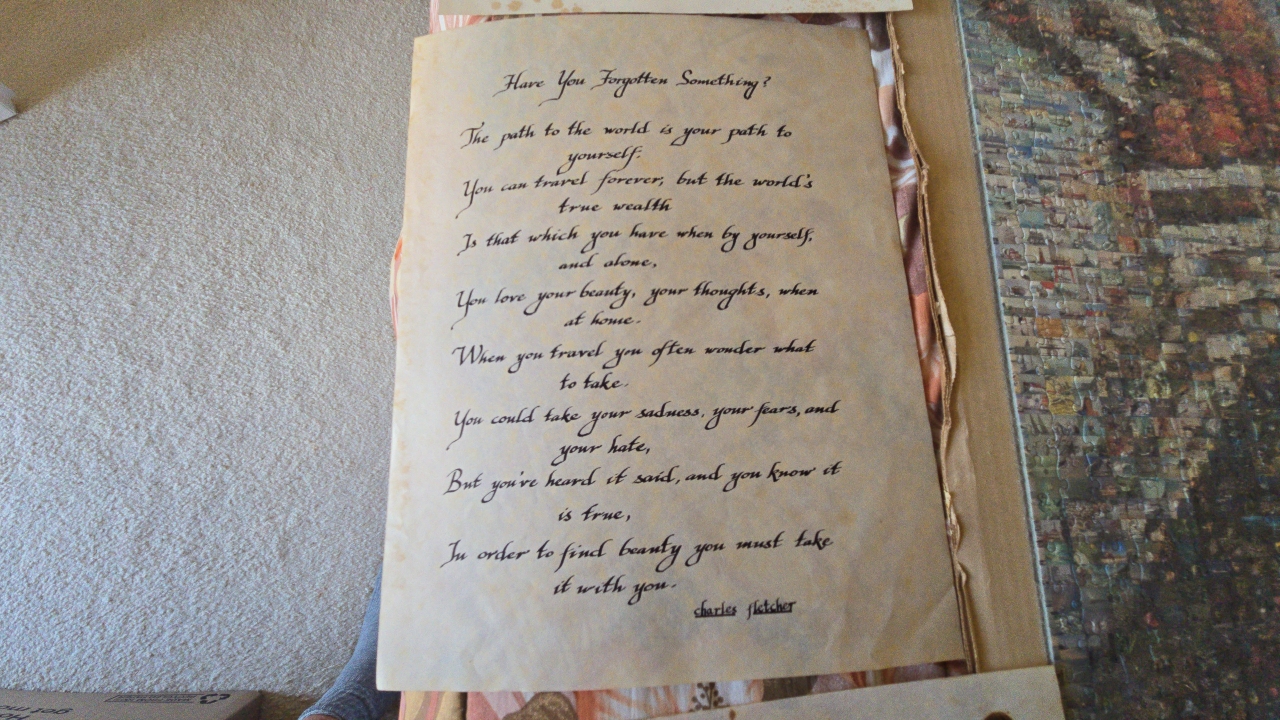 Have You Forgotten Something?
The path to the world is your path to
yourself.
You can travel forever, but the world's
true wealth
Is that which you have when by yourself,
and alone,
You love your beauty, your thoughts, when
at home.
When you travel you often wonder what
to take.
You could take your sadness, your fears, and
your hate,
But you've heard it said, and you know it
is true,
In order to find beauty you must take
it with you.
charles fletcher
got mo